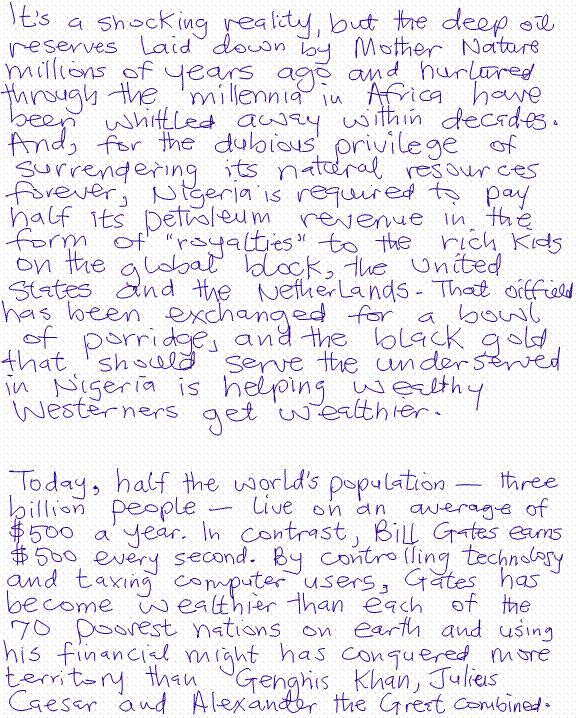 It's a shocking reality, but the deep oil
reserves laid down by Mother Nature
millions of years ago and nurtured
through the millennia in Africa have
been whittled away within decades.
And, for the dubious privilege of
surrendering its natural resources
forever, Nigeria is required to pay
half its petroleum revenue in the
form of "royalties" to the rich kids
on the global block, the United
States and the Netherlands - That oilfield
has been exchanged for a bowl
of porridge, and the black gold
that should serve the underserved
in Nigeria is helping wealthy
Westerners get wealthier.
Today, half the world's population — three
billion people — live on an average of
$500 a year. In contrast, Bill Gates earns
$500 every second. By controlling technology
and taxing computer users, Gates has
become wealthier than each of the
70 poorest nations on earth and using
his financial might has conquered more
territory than Genghis Khan, Julius
Caesar and Alexander the Great combined.